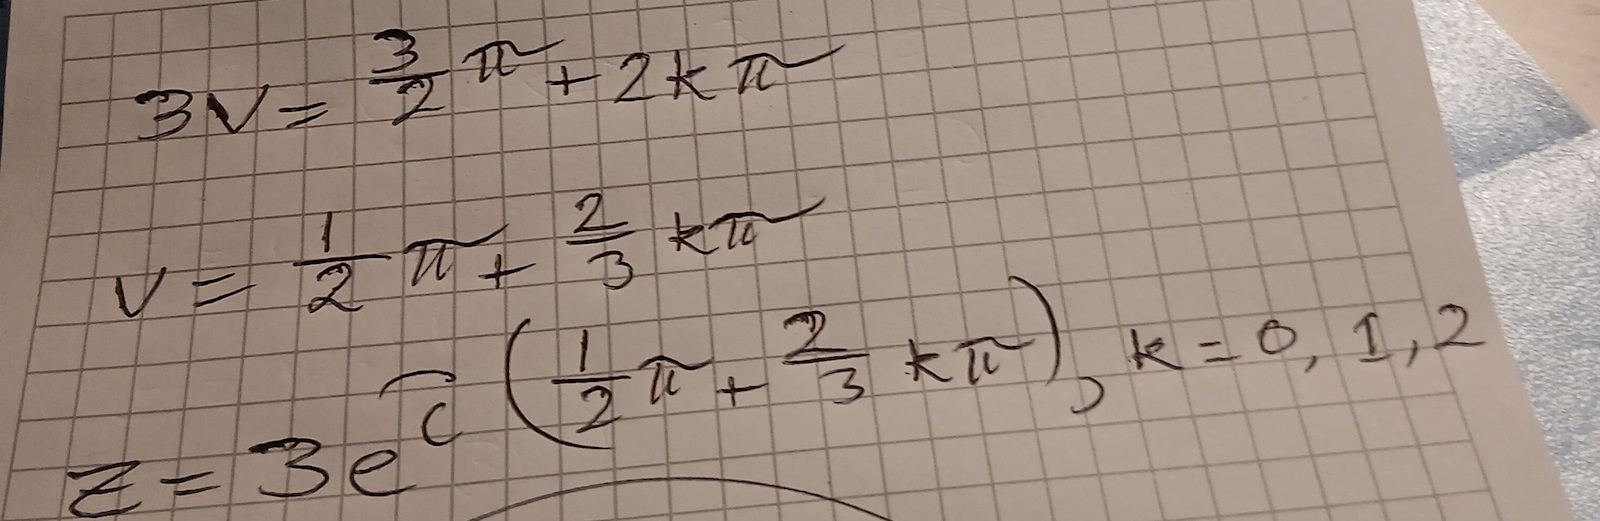 3v = 3/2 π + 2kπ
v = 1/2 π + 2/3 kπ
z = 3e^i(1/2 π + 2/3 kπ), k = 0, 1, 2